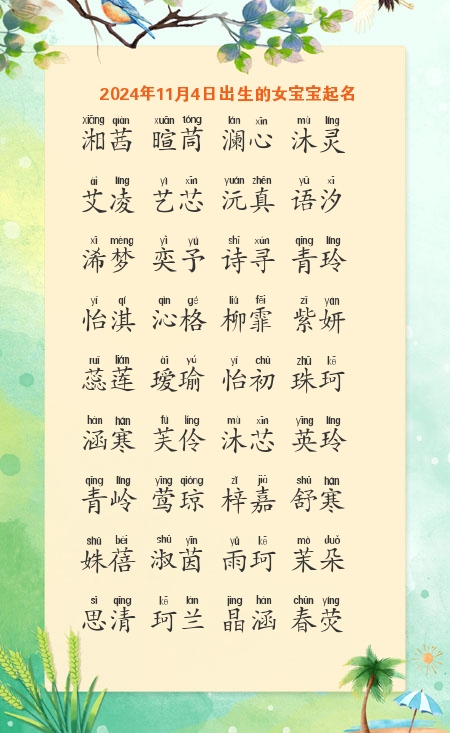 2024年11月4日出生的女宝宝起名
xiāng qiàn xuān tóng lán xīn mù líng
湘茜 暄茼 澜心 沐灵
ài líng yì xīn yuán zhēn yǔ xī
艾凌 艺芯 沅真 语汐
xī mèng yì yǔ shī xún qīng líng
浠梦 奕予 诗寻 青玲
yí qí qìn gé liǔ fēi zǐ yán
怡淇 沁格 柳霏 紫妍
ruǐ lián ài yú yí chū zhū kē
蕊莲 瑷瑜 怡初 珠珂
hán hán fú líng mù xīn yīng líng
涵寒 芙伶 沐芯 英玲
qīng líng yīng qióng zǐ jiā shū hán
青岭 莺琼 梓嘉 舒寒
shū bèi shū yīn yǔ kē mò duǒ
姝蓓 淑茵 雨珂 茉朵
sī qīng kē lán jīng hán chūn yíng
思清 珂兰 晶涵 春荧